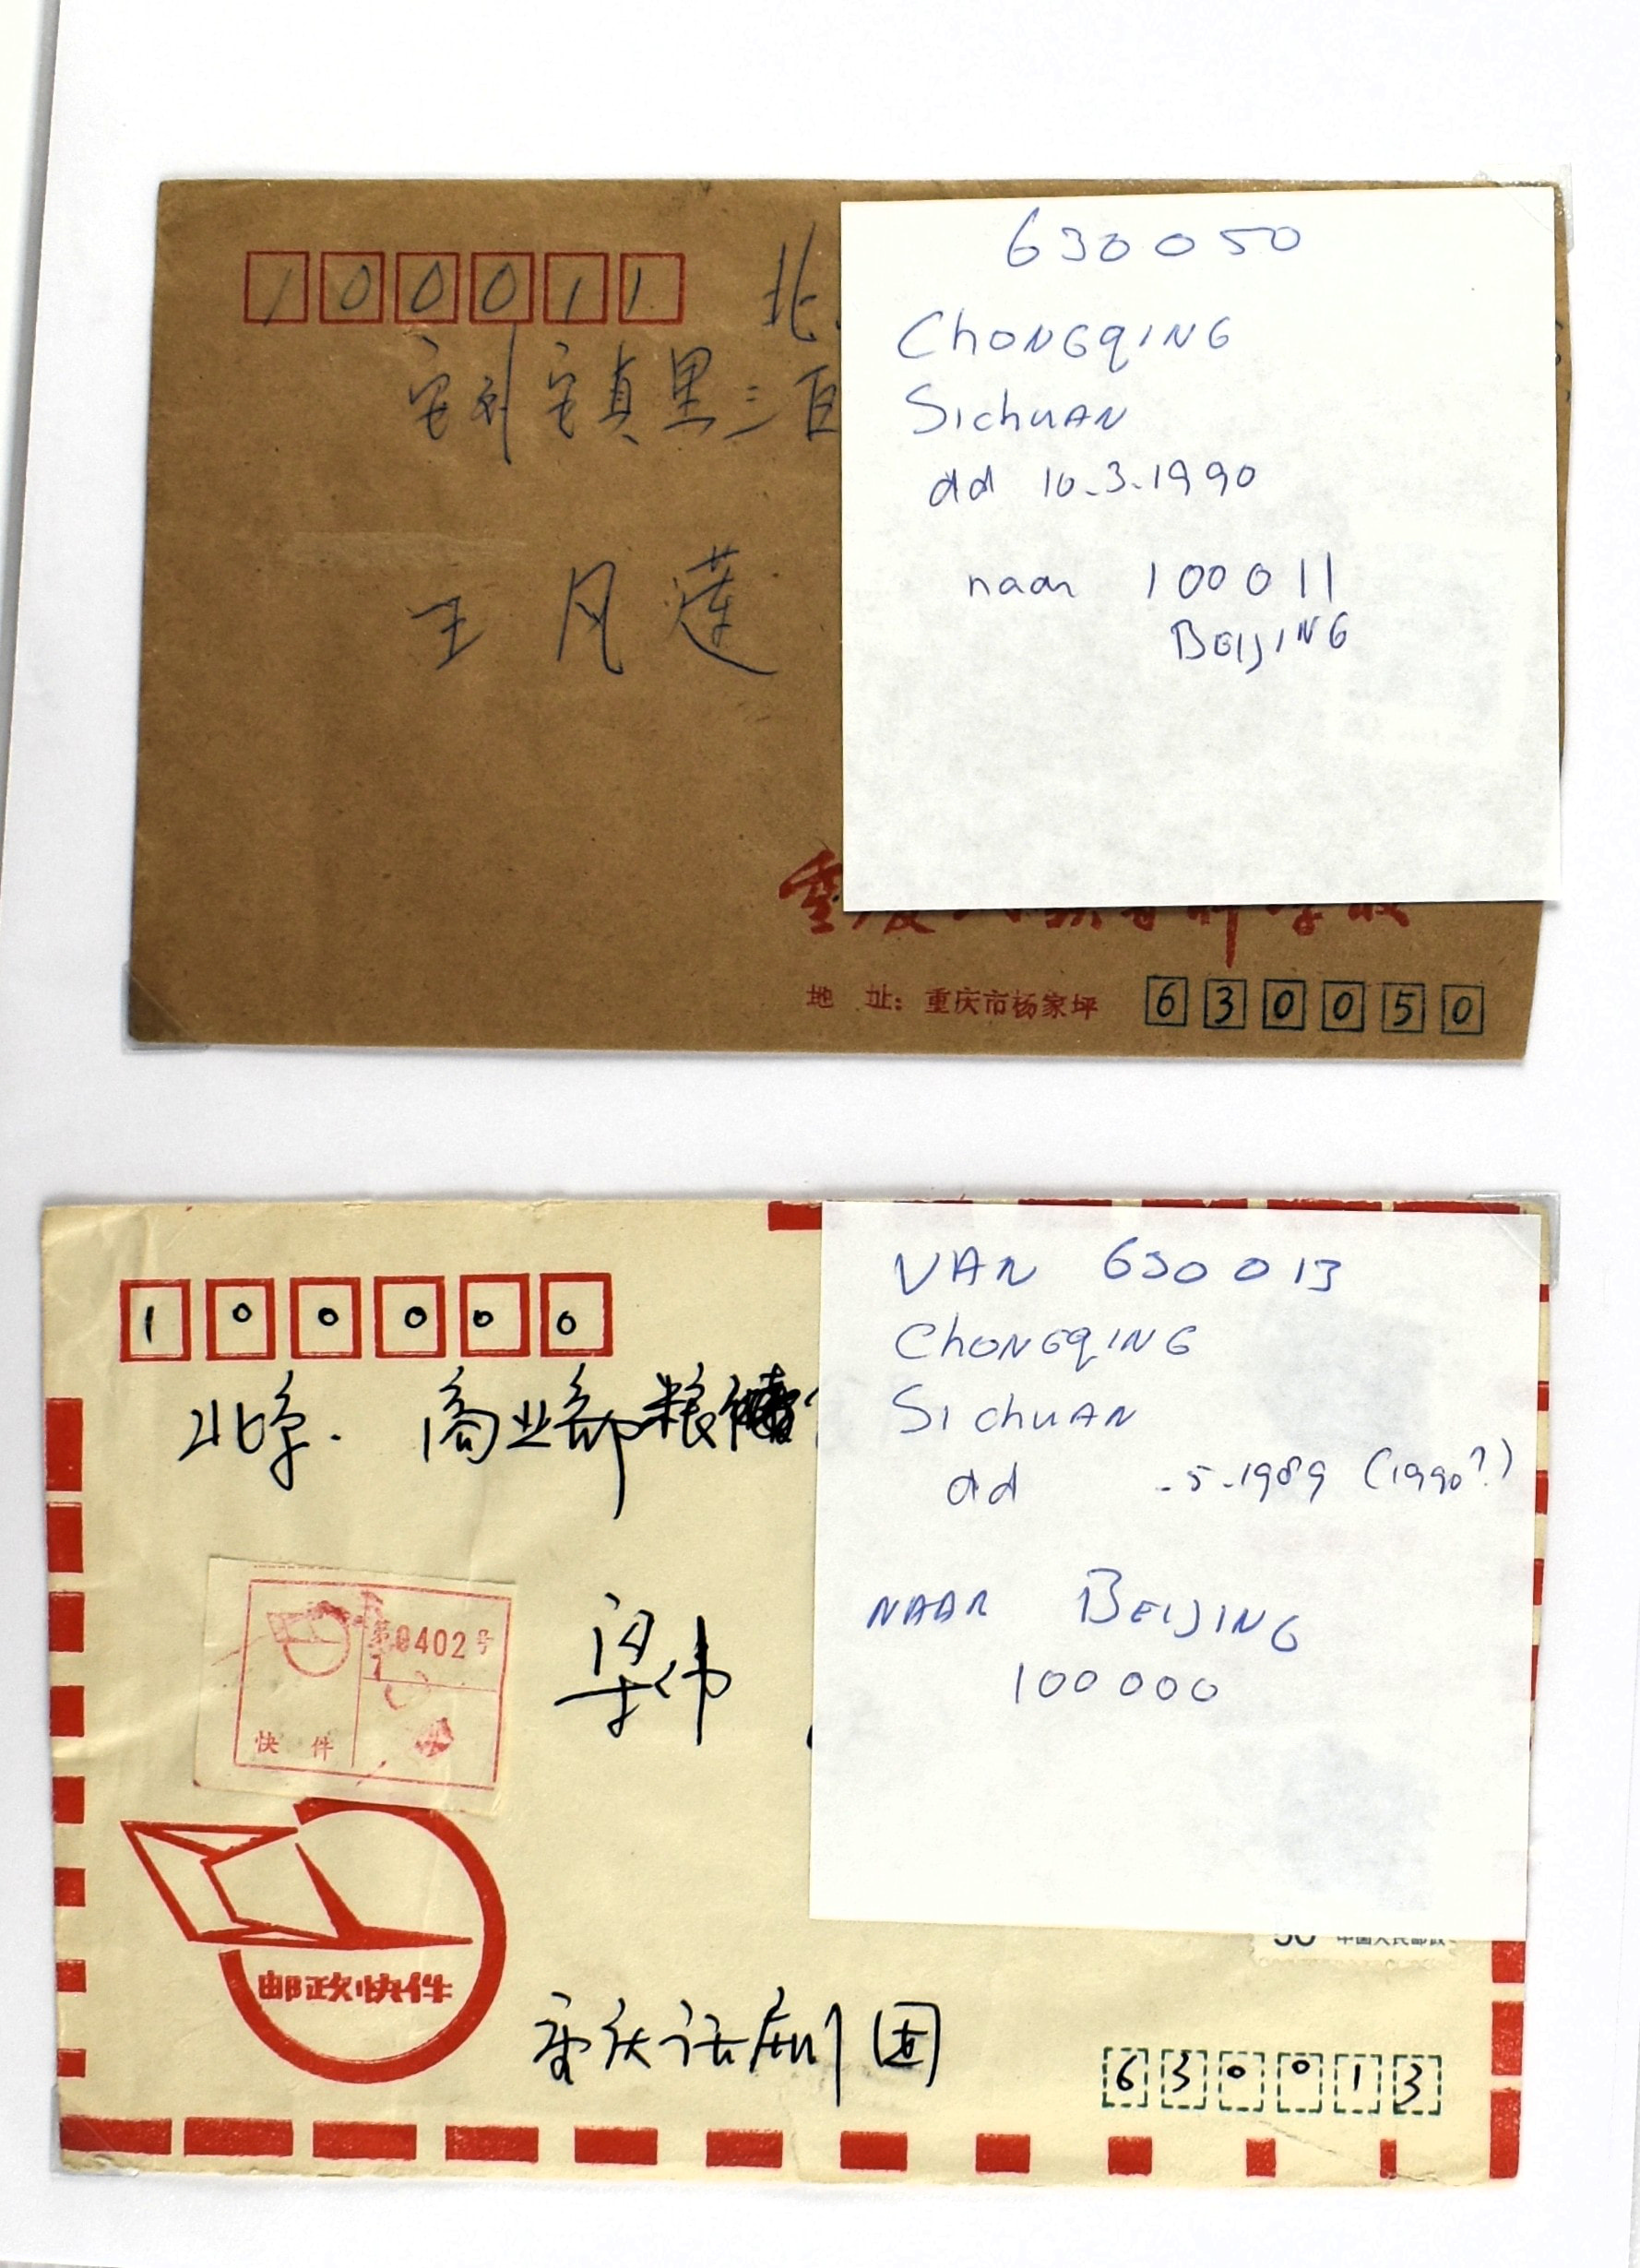 100011 北
630050
Chongqing
Sichuan
dd 10.3.1990
naar 100011
Beijing
王凡莲
地 址：重庆市杨家坪 630050
VAN 630013
Chongqing
Sichuan
dd .5.1989 (1990?)
NAAR BEIJING
100000
100000
北京. 商业部粮
第0402号
快 件
梁伟
邮政快件
50 中国人民邮政
重庆话剧团
630013